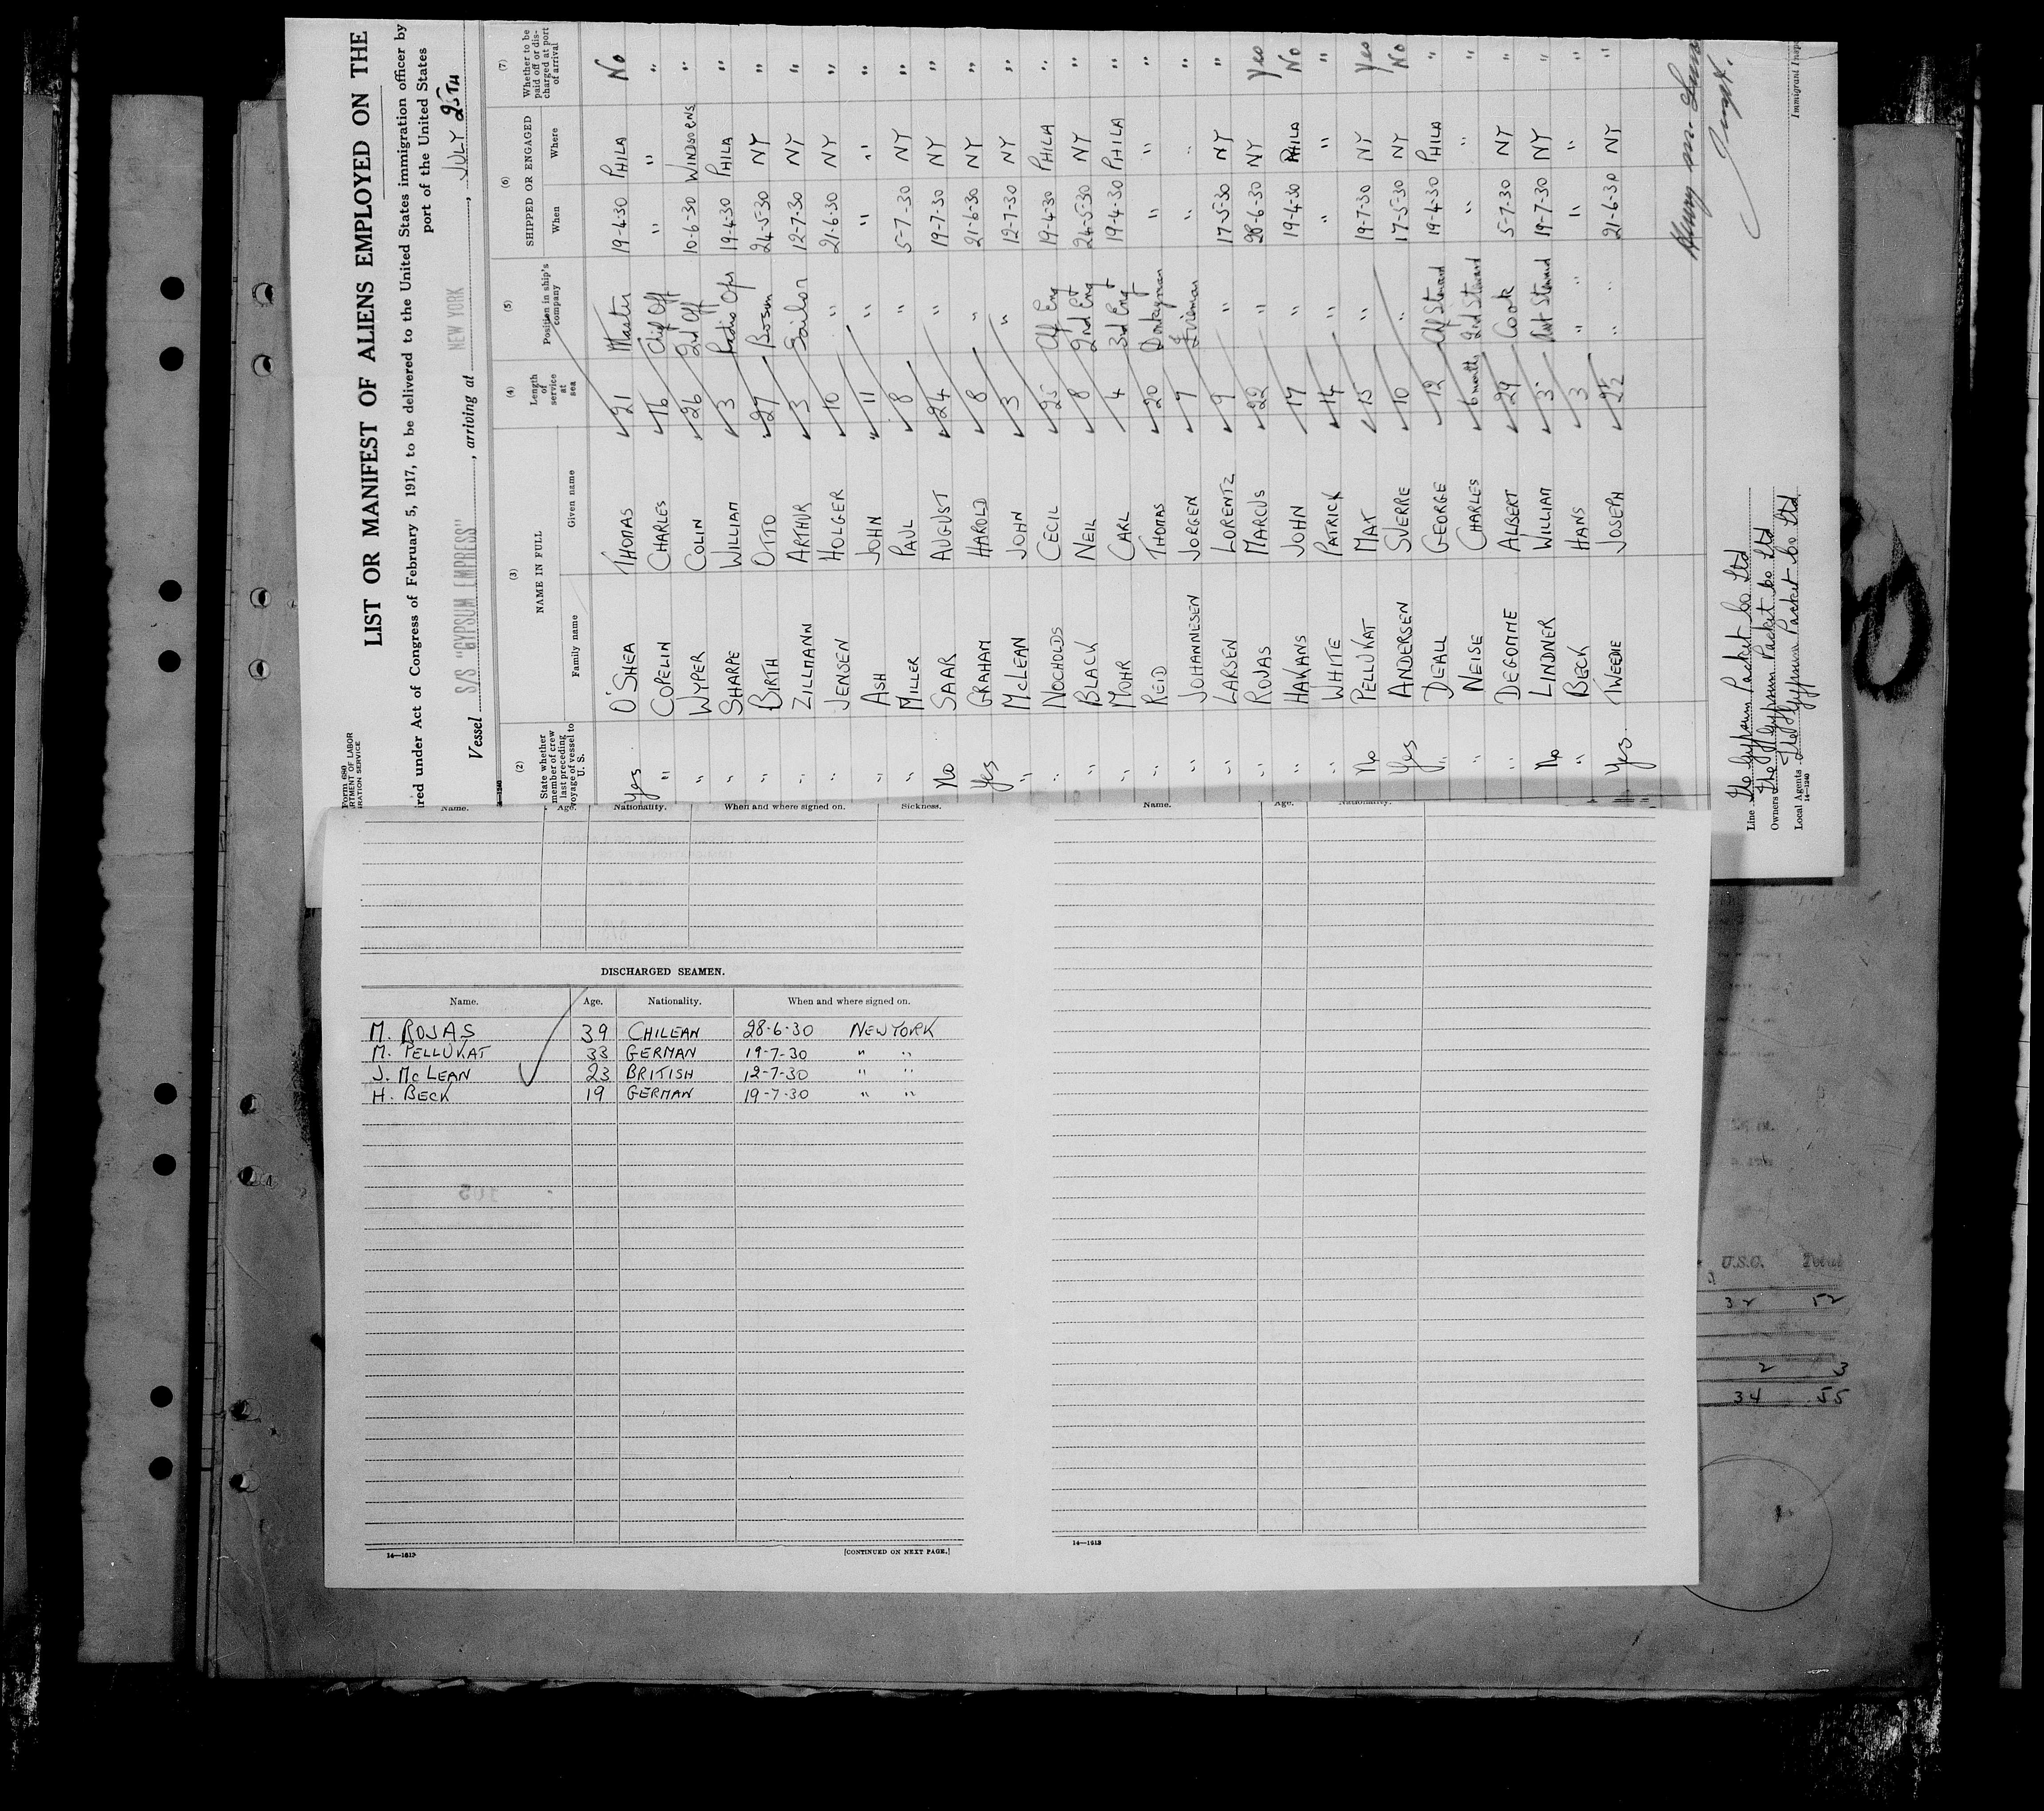 Form 680
LIST OR MANIFEST OF ALIENS EMPLOYED ON THE
red under Act of Congress of February 5, 1917, to be delivered to the United States immigration officer by
port of the United States
Vessel S/S "GYPSUM EMPRESS", arriving at NEW YORK, JULY 25TH
(2) (3) (4) (5) (6) (7)
State whether member of crew last preceding voyage of vessel to U. S. NAME IN FULL Length of service at sea Position in ship's company SHIPPED OR ENGAGED Whether to be paid off or discharged at port of arrival
Family name Given name When Where
Yes O'SHEA THOMAS 21 Master 19-4-30 PHILA No
" COPELIN CHARLES 16 Chief Off " " "
" WYPER COLIN 26 2nd Off 10-6-30 WINDSOR NS "
" SHARPE WILLIAM 3 Radio Opr 19-4-30 PHILA "
" BIRTH OTTO 27 Bosun 24-5-30 NY "
" ZILLMANN ARTHUR 3 Sailor 12-7-30 NY "
" JENSEN HOLGER 10 " 21-6-30 NY "
" ASH JOHN 11 " " " "
" MILLER PAUL 8 " 5-7-30 NY "
No SAAR AUGUST 24 " 19-7-30 NY "
Yes GRAHAM HAROLD 8 " 21-6-30 NY "
" MCLEAN JOHN 3 " 12-7-30 NY "
" NOCHOLDS CECIL 25 Chf Eng 19-4-30 PHILA "
" BLACK NEIL 8 2nd Eng 24-5-30 NY "
" MOHR CARL 4 3rd Eng 19-4-30 PHILA "
" REID THOMAS 20 Donkeyman " " "
" JOHANNESEN JORGEN 9 Fireman " " "
" LARSEN LORENTZ 9 " 17-5-30 NY "
" ROJAS MARCUS 22 " 28-6-30 NY Yes
" HAKANS JOHN 17 " 19-4-30 PHILA No
" WHITE PATRICK 14 " " " "
No PELLUKAT MAT 15 19-7-30 NY Yes
Yes ANDERSEN SVERRE 10 " 17-5-30 NY No
" DEALL GEORGE 12 Chf Steward 19-4-30 PHILA "
" NEISE CHARLES 6 months 2nd Steward " " "
" DEGOTTE ALBERT 29 Cook 5-7-30 NY "
No LINDNER WILLIAM 3 Asst Steward 19-7-30 NY "
" BECK HANS 3 " " " "
Yes TWEEDIE JOSEPH 22 " 21-6-30 NY "
Line The Gypsum Packet Co Ltd
Owners The Gypsum Packet Co Ltd
Local Agents The Gypsum Packet Co Ltd
14—1240
Immigrant Inspe
Name. Age. Nationality. When and where signed on. Sickness.
DISCHARGED SEAMEN.
Name. Age. Nationality. When and where signed on.
M. ROJAS 39 CHILEAN 28-6-30 NEW YORK
M. PELLUKAT 33 GERMAN 19-7-30 " "
J. MCLEAN 23 BRITISH 12-7-30 " "
H. BECK 19 GERMAN 19-7-30 " "
14—1613
[CONTINUED ON NEXT PAGE.]
Name. Age. Nationality.
14—1613
U.S.C. Total
32 52
2 3
34 55